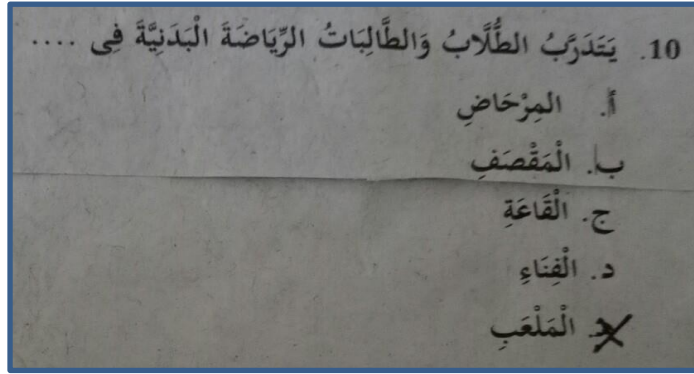 10. يَتَدَرَّبُ الطُّلَّابُ وَالطَّالِبَاتُ الرِّيَاضَةَ الْبَدَنِيَّةَ فِى ....
أ. المِرْحَاضِ
ب. الْمَقْصَفِ
ج. الْقَاعَةِ
د. الْفِنَاءِ
الْمَلْعَبِ